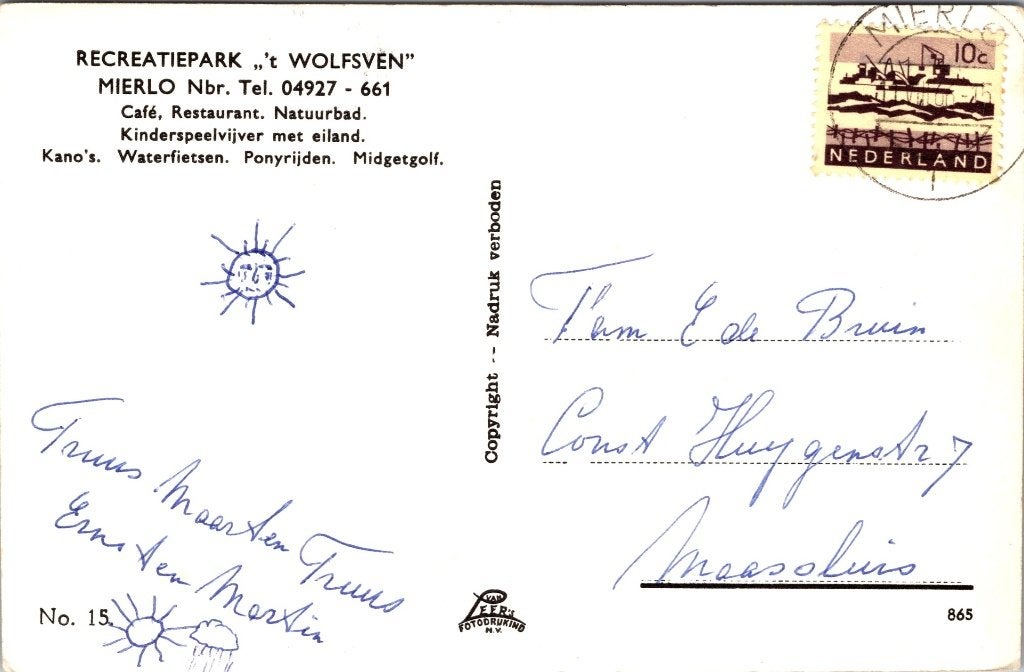 RECREATIEPARK „'t WOLFSVEN"
MIERLO Nbr. Tel. 04927 - 661
Café, Restaurant. Natuurbad.
Kinderspeelvijver met eiland.
Kano's. Waterfietsen. Ponyrijden. Midgetgolf.
Truus Maarten Truus
Ernst en Martin
No. 15
Copyright -- Nadruk verboden
VAN
LEER's
FOTODRUKIND
N.V.
MIERLO
10c
NEDERLAND
Fam E de Bruin
Const Huygenstr 7
Maassluis
865